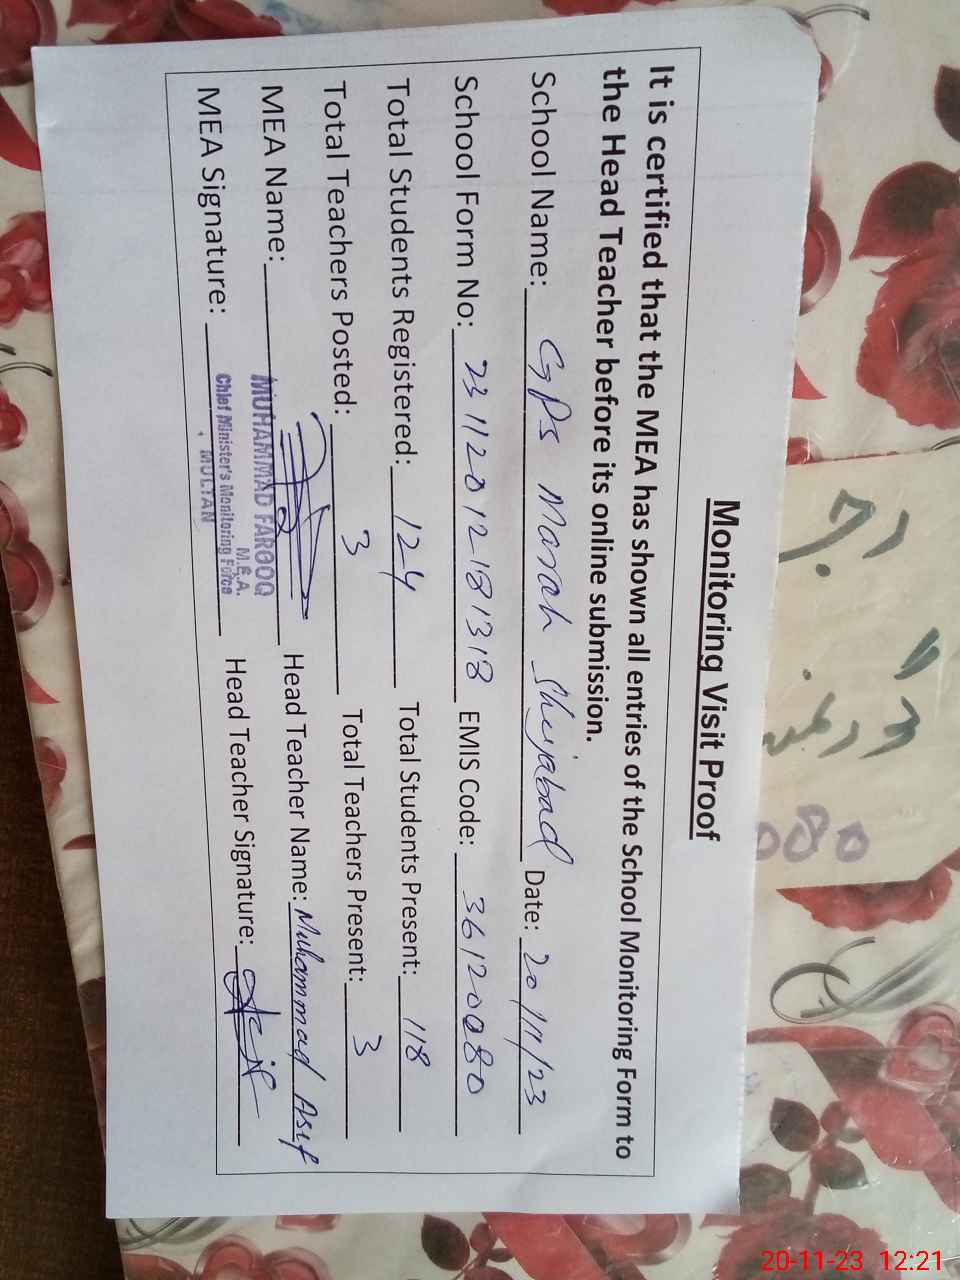 Monitoring Visit Proof
It is certified that the MEA has shown all entries of the School Monitoring Form to
the Head Teacher before its online submission.
School Name: GPS Marah Shujabad Date: 20/11/23
School Form No: 231120121813 18 EMIS Code: 36120080
Total Students Registered: 124 Total Students Present: 118
Total Teachers Posted: 3 Total Teachers Present: 3
MEA Name: Head Teacher Name: Muhammad Asif
MUHAMMAD FAROOQ
M.E.A.
Chief Minister's Monitoring Force
MULTAN
MEA Signature: Head Teacher Signature: Asif
080
20-11-23 12:21